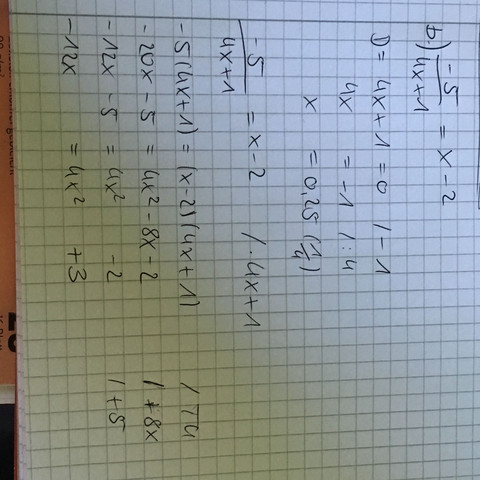 b.) -5/4x+1 = x - 2
D = 4x + 1 = 0 / - 1
4x = - 1 / : 4
x = 0,25 (1/4)
-5/4x+1 = x - 2 / · 4x + 1
-5 (4x+1) = (x - 2) (4x + 1) / TU
-20x - 5 = 4x² - 8x - 2 / + 8x
-12x - 5 = 4x² - 2 / + 5
-12x = 4x² + 3